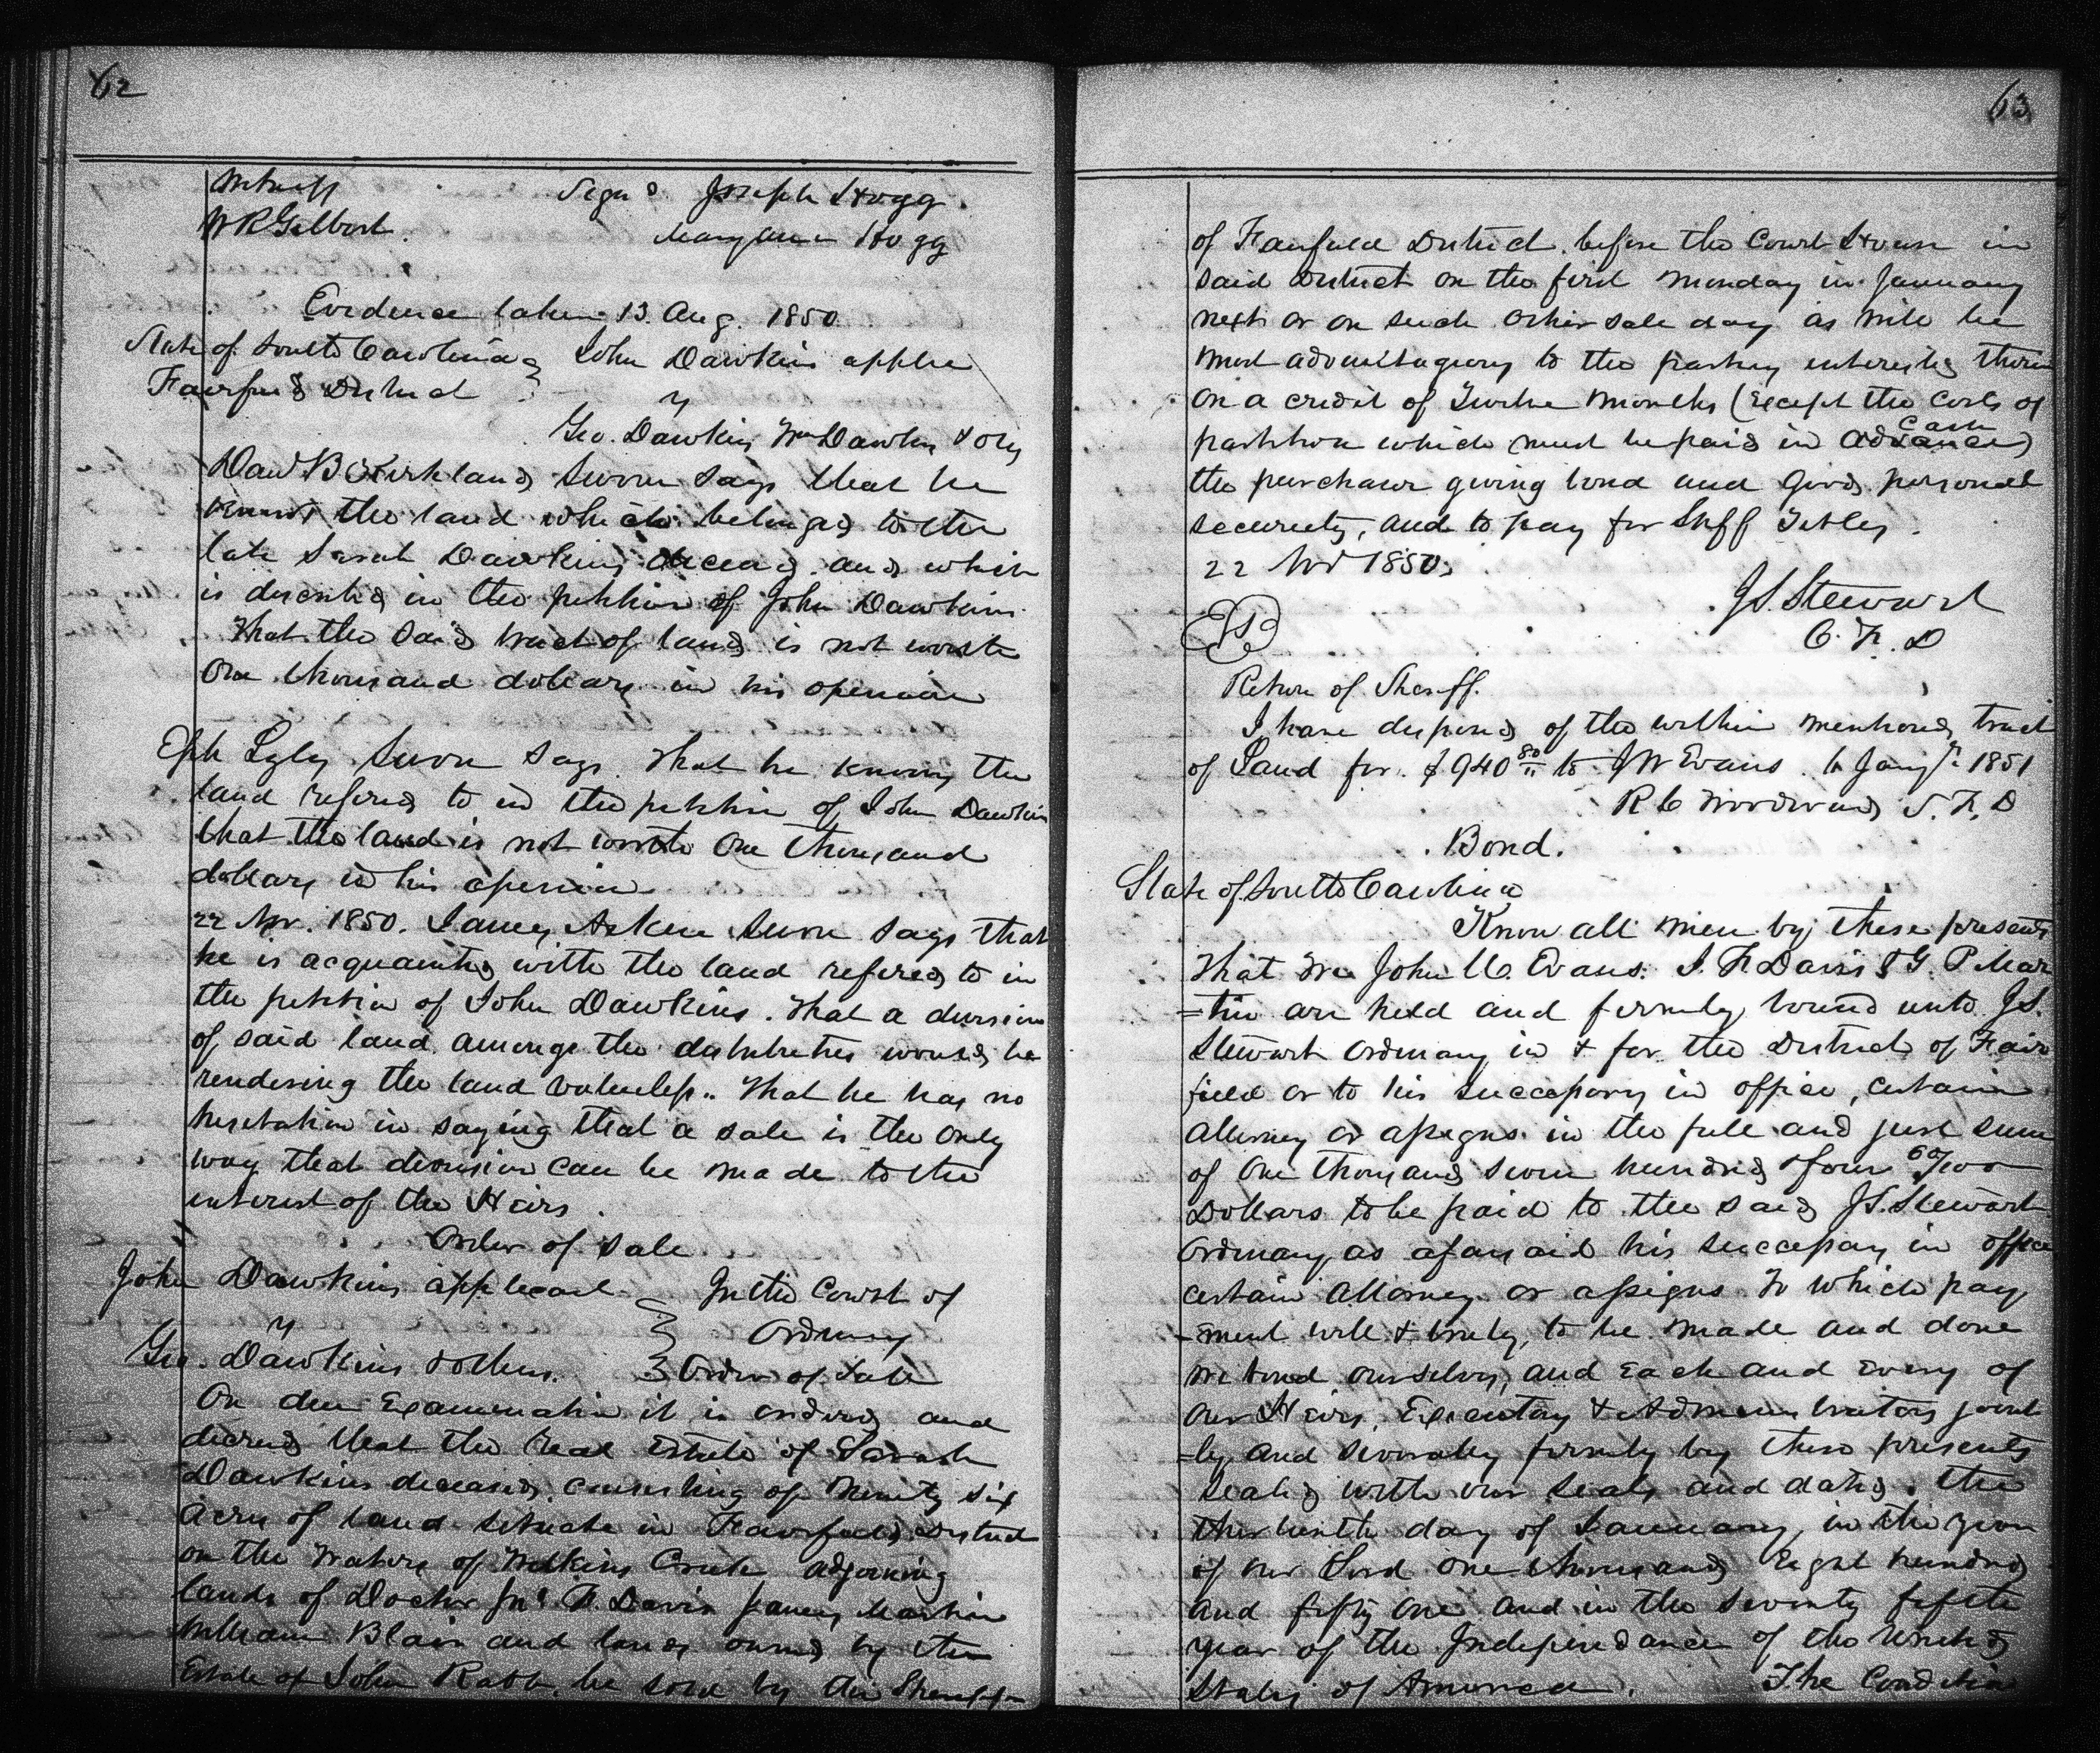 62
Witness Signd Joseph Hogg.
W R Gilbert. Mary Ann Hogg
Evidence taken 13. Aug. 1850
State of South Carolina } John Dawkins applic
Fairfield District } v
Geo. Dawkins Wm Dawkins & ors
Davd B Kirkland sworn says that he
knows the land which belonged to the
late Sarah Dawkins deceasd. and which
is described in the petition of John Dawkins
That the said tract of land is not worth
One thousand dollars in his opinion
Eph Lyles sworn says. That he knows the
land refered to in the petition of John Dawkins
that the land is not worth One thousand
dollars in his opinion
22 Nov. 1850. James Aiken sworn says that
he is acquainted with the land refered to in
the petition of John Dawkins. That a division
of said land amongst the distributees would be
rendering the land valueless. That he has no
hesitation in saying that a sale is the only
way that division can be made to the
interest of the Heirs.
Order of Sale
John Dawkins applicant } In the Court of
v } Ordinary
Geo. Dawkins & others. } Order of Sale
On due Examination it is ordered and
decreed that the real Estate of Sarah
Dawkins deceased, consisting of Ninety six
Acres of land situate in Fairfield District
on the waters of Wilkins Creek adjoining
lands of Doctor Jno F. Davis James Martin
William Blair and lands owned by the
Estate of John Rabb. be sold by the Sheriff
63
of Fairfield District. before the Court House in
said District on the first Monday in January
next or on such other sale day as will be
most advantageous to the parties interested therein
on a credit of Twelve Months (Except the costs of
partition which must be paid in Cash advance)
the purchaser giving bond and good personal
security, and to pay for Shff Titles.
22 Nov 1850.
J S. Stewart
O. F. D
Return of Sheriff.
I have disposed of the within mentioned tract
of Land for $940 80 to J W Evans. 6 Jany 1851
R C Woodward S. F. D
Bond.
State of South Carolina
Know all men by these presents
That We John W. Evans. J. F Davis & G. P Mar
=tin are held and firmly bound unto J S.
Stewart Ordinary in & for the District of Fair
field or to his successors in office, certain
attorney or assigns in the full and just sum
of One thousand seven hundred & four 60/100
Dollars to be paid to the said J S. Stewart
Ordinary as aforesaid his successors in office
certain attorney or assigns To which pay
-ment well & truly, to be made and done
we bind ourselves, and Each and Every of
our Heirs, Executors & Administrators joint
=ly and severally firmly by these presents
sealed with our seals and dated the
thirteenth day of January, in the year
of our Lord one thousand Eight hundred
and fifty one and in the seventy fifth
year of the Independance of the United
States of America. The Condition